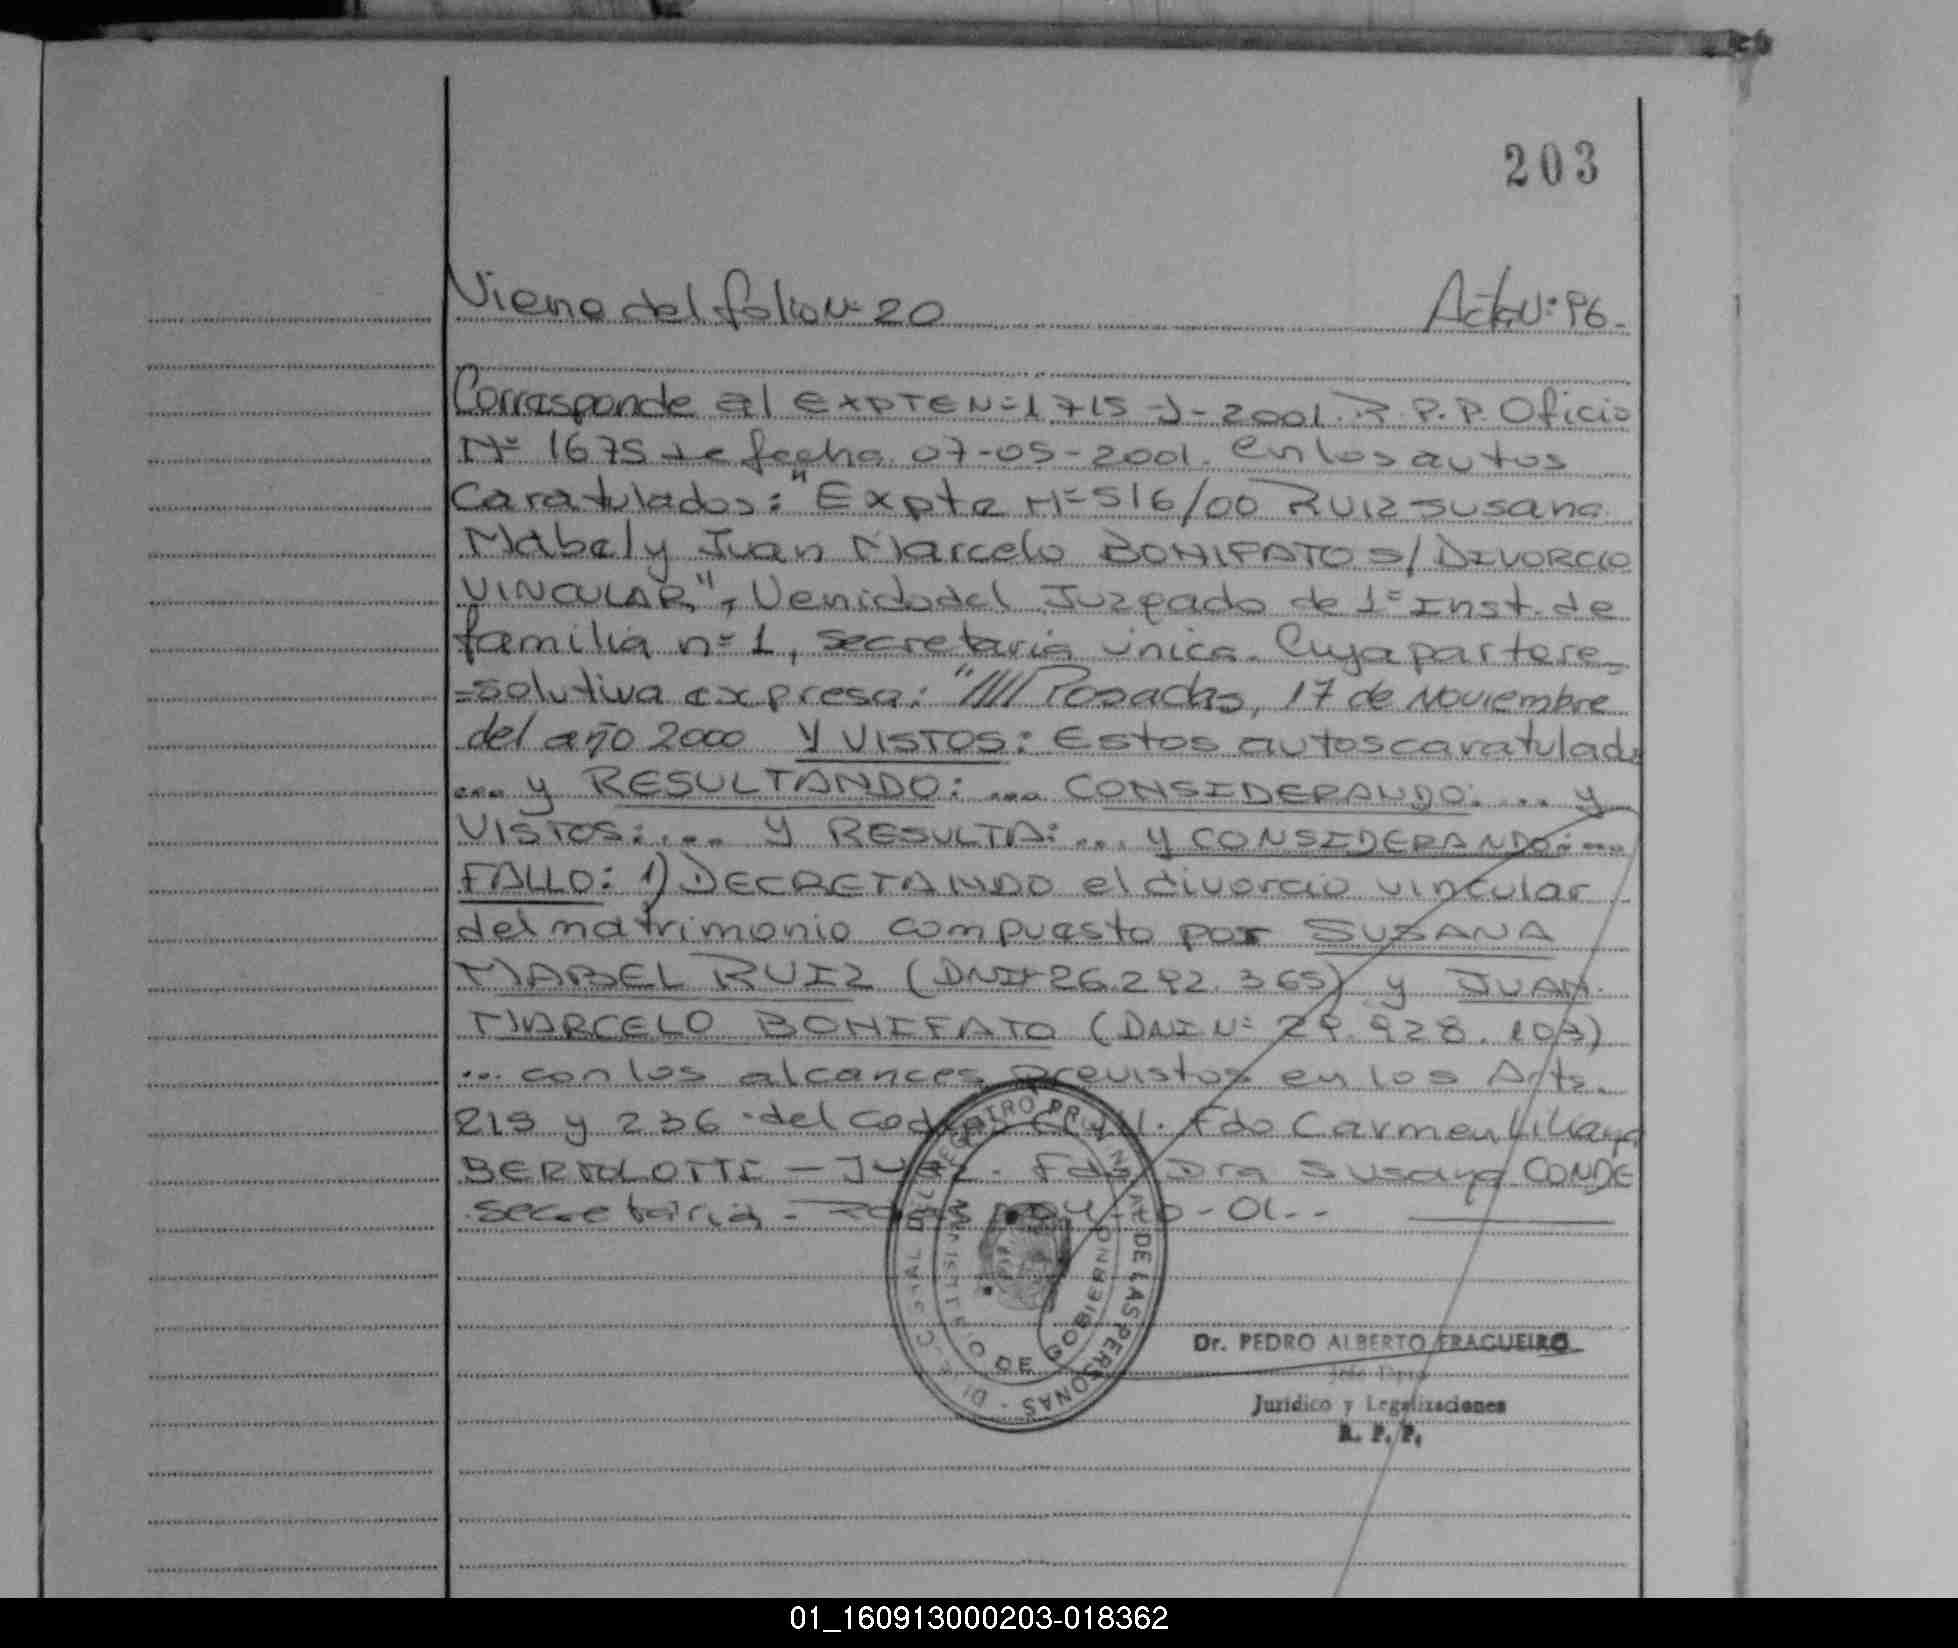 203
Viene del folio Nº 20 Acta Nº: 96.
Corresponde al EXPTE Nº 1715-J-2001. R.P.P. Oficio
Nº 1675 de fecha 07-05-2001. en los autos
Caratulados: "Expte Nº 516/00 RUIZ Susana
Mabel y Juan Marcelo BONIFATO S/ DIVORCIO
VINCULAR", Venido del Juzgado de 1º Inst. de
familia nº 1, secretaria única. Cuya parte re-
=solutiva expresa: "//// Posadas, 17 de Noviembre
del año 2000 Y VISTOS: Estos autos caratulados
... y RESULTANDO: ... CONSIDERANDO: ... y
VISTOS: ... Y RESULTA: ... y CONSIDERANDO: ...
FALLO: 1) DECRETANDO el divorcio vincular
del matrimonio compuesto por SUSANA
MABEL RUIZ (DNI 26.292.365) y JUAN
MARCELO BONIFATO (DNI Nº 29.928.103)
... con los alcances previstos en los Arts.
215 y 236 del Codigo Civil. Fdo Carmen Liliana
BERTOLOTTI - Juez. Fdo Dra Susana CONDE
Secretaria.
DE LAS PERSONAS
MINISTERIO DE GOBIERNO
Dr. PEDRO ALBERTO FRAGUEIRO
Jefe Dpto
Jurídico y Legalizaciones
R. P. P.
01_160913000203-018362